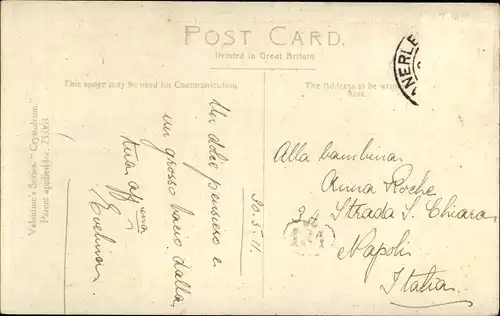 POST CARD.
Printed in Great Britain
This space may be used for Communication
The Address to be writ
here
Valentine's Series. "Crystoleum."
Patent applied for, 23,063
ANERLE
Un dolce pensiero e
un grosso bacio dalla
tua aff ma
Evelina
20.5.11.
Alla bambina
Anna Roche
34
Strada S. Chiara
Napoli
Italia